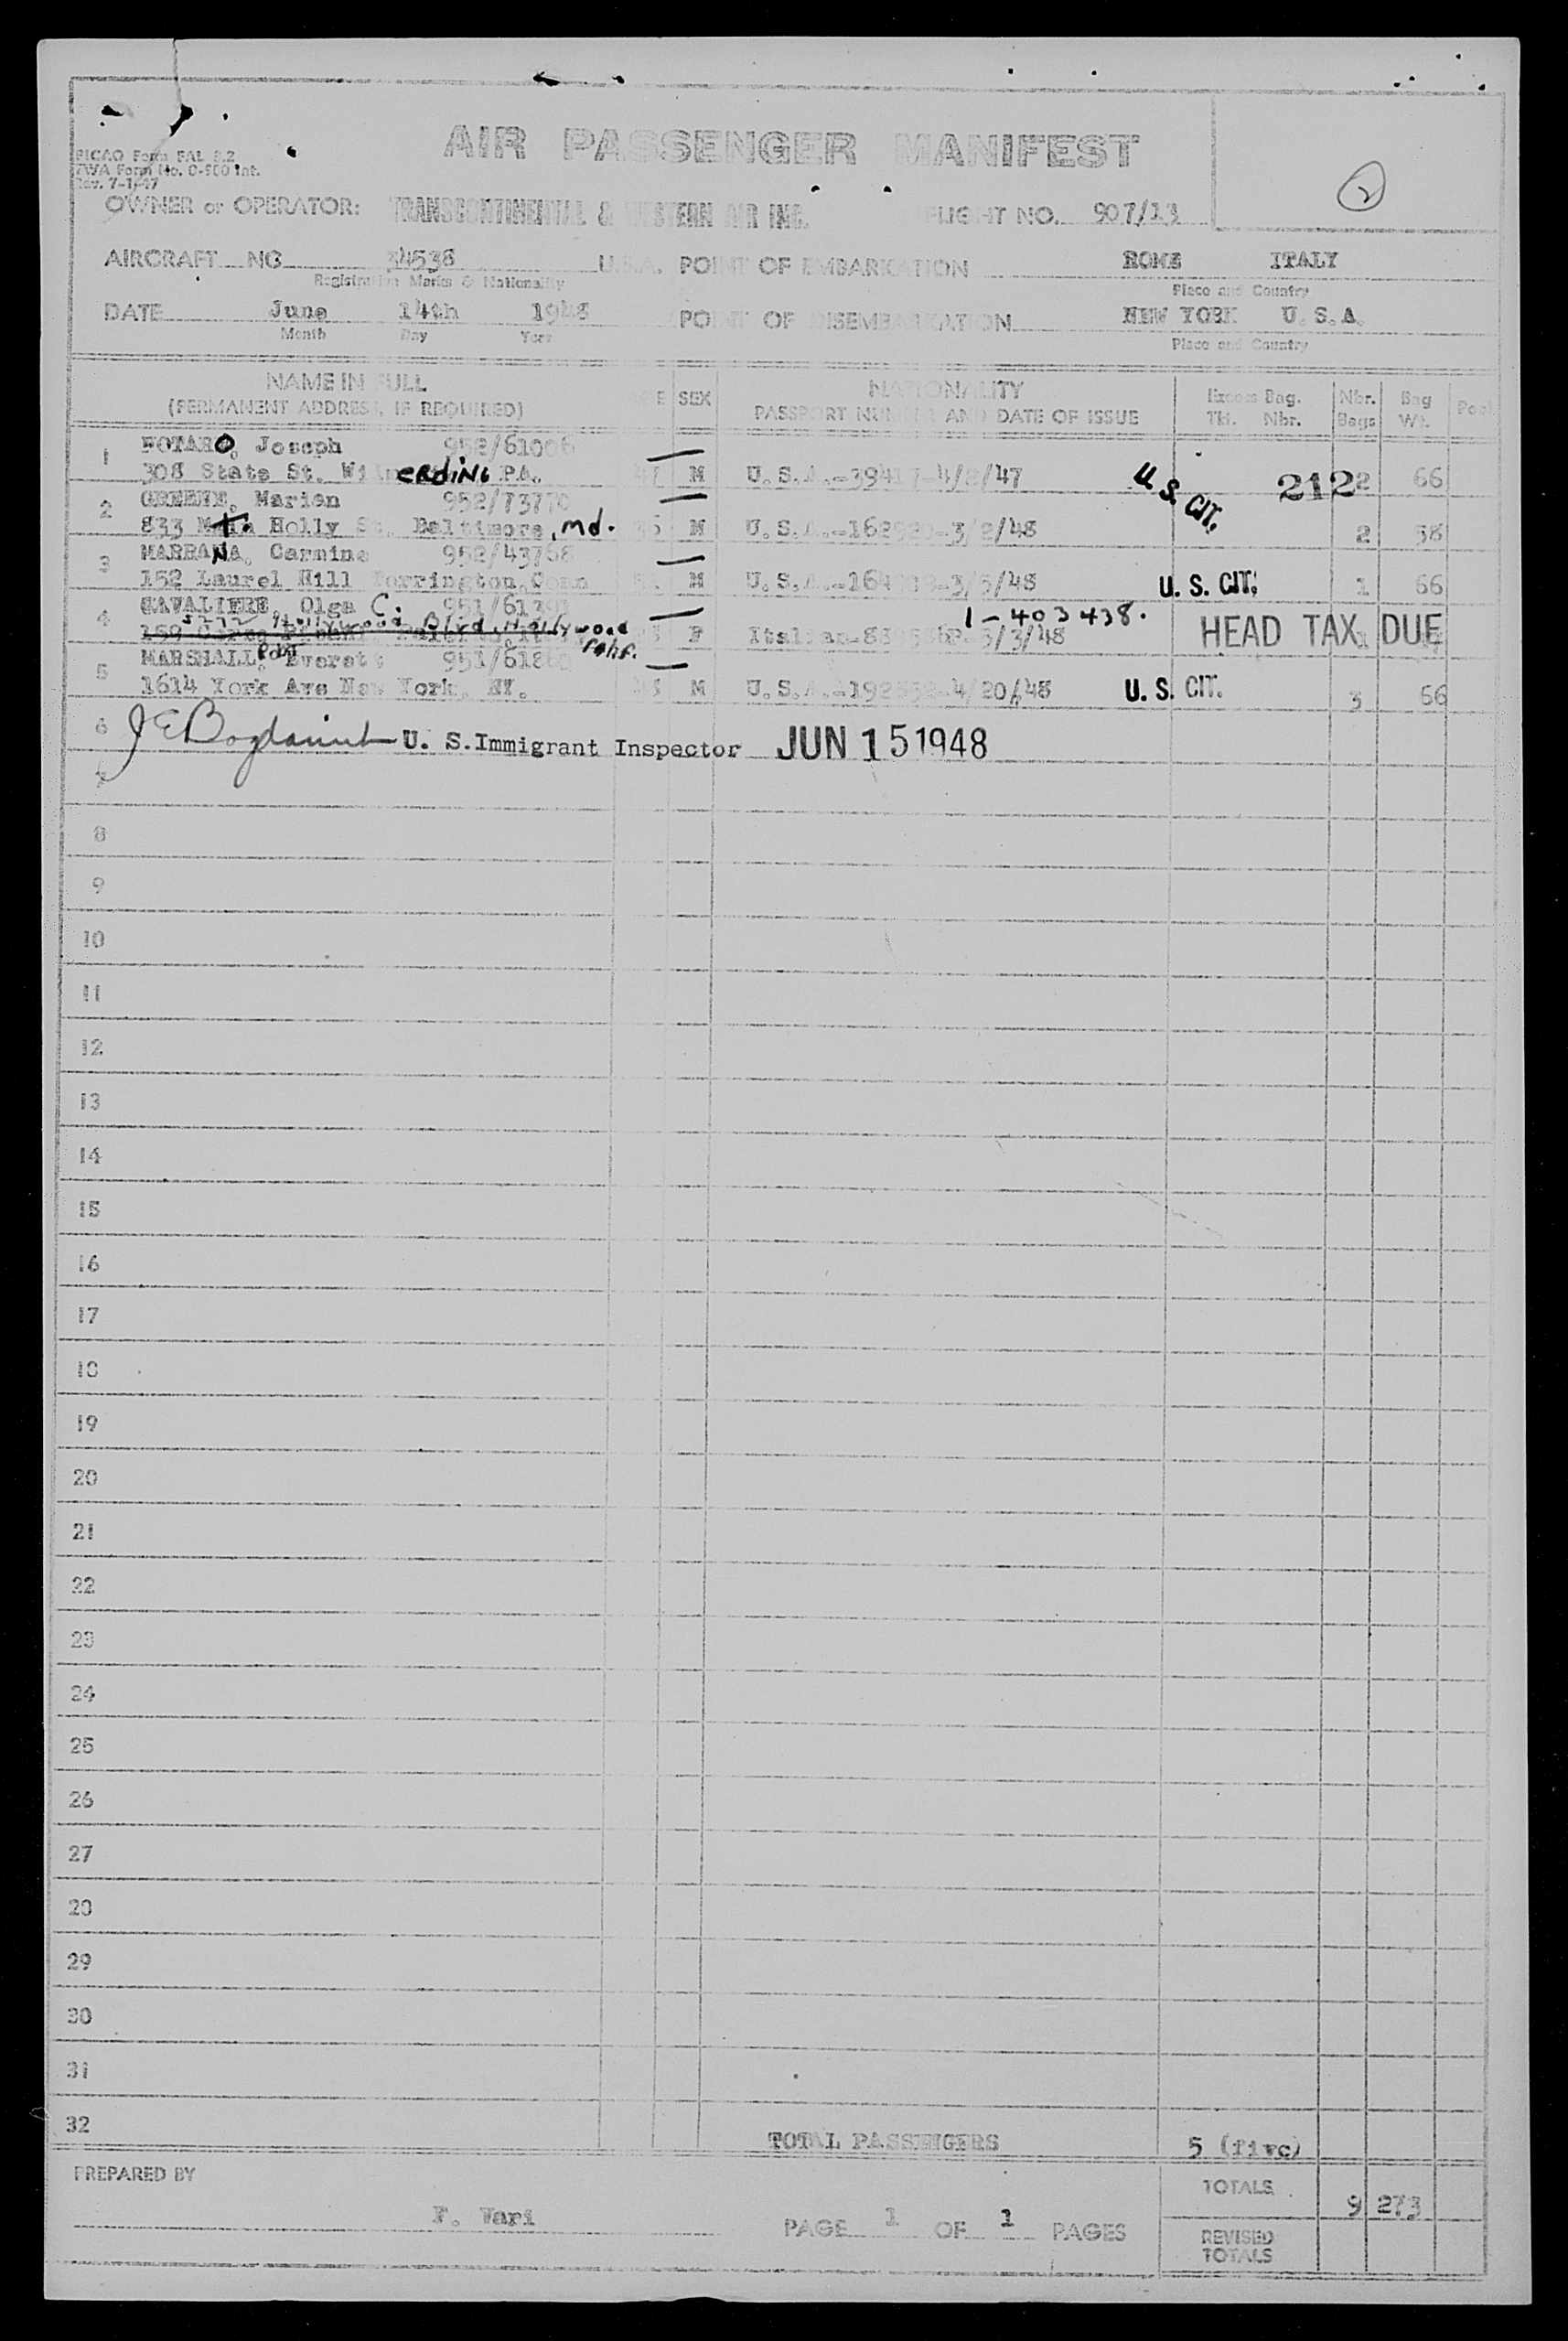 AIR PASSENGER MANIFEST
PICAO Form FAL 3.2
TWA Form No. 0-900 Int.
Rev. 7-1-47
2
OWNER or OPERATOR: TRANSCONTINENTAL & WESTERN AIR INC. FLIGHT NO. 907/13
AIRCRAFT NO 34538 U.S.A. POINT OF EMBARKATION ROME ITALY
Registration Marks & Nationality Place and Country
DATE June 14th 1948 POINT OF DISEMBARKATION NEW YORK U.S.A.
Month Day Year Place and Country
NAME IN FULL SEX NATIONALITY Excess Bag. Nbr. Bag
(PERMANENT ADDRESS, IF REQUIRED) PASSPORT NUMBER AND DATE OF ISSUE Tkt. Nbr. Bags Wt.
1 NOTARO, Joseph 952/61006
308 State St. Wilmerding PA. M U.S.A.- /47 U.S. CIT. 212 2 66
2 GREENE, Marion 952/73770
833 Mt. Holly St. Baltimore, Md. M U.S.A.- 3/2/48 2 38
3 MARRANA, Carmine 952/43768
152 Laurel Hill Torrington, Conn M U.S.A.- 3/5/48 U.S. CIT. 1 66
4 CAVALIERE, Olga C. 951/
Hollywood Blvd. Hollywood F Italian- /3/48 1-403438. HEAD TAX DUE 1
5 MARSHALL, Robt Everett 951/
1614 York Ave New York, NY. M U.S.A.- 4/20/48 U.S. CIT. 3 56
6 U. S. Immigrant Inspector JUN 15 1948
7
8
9
10
11
12
13
14
15
16
17
18
19
20
21
22
23
24
25
26
27
28
29
30
31
32
TOTAL PASSENGERS 5 (five)
PREPARED BY TOTALS 9 273
F. Vari PAGE 1 OF 1 PAGES
REVISED
TOTALS